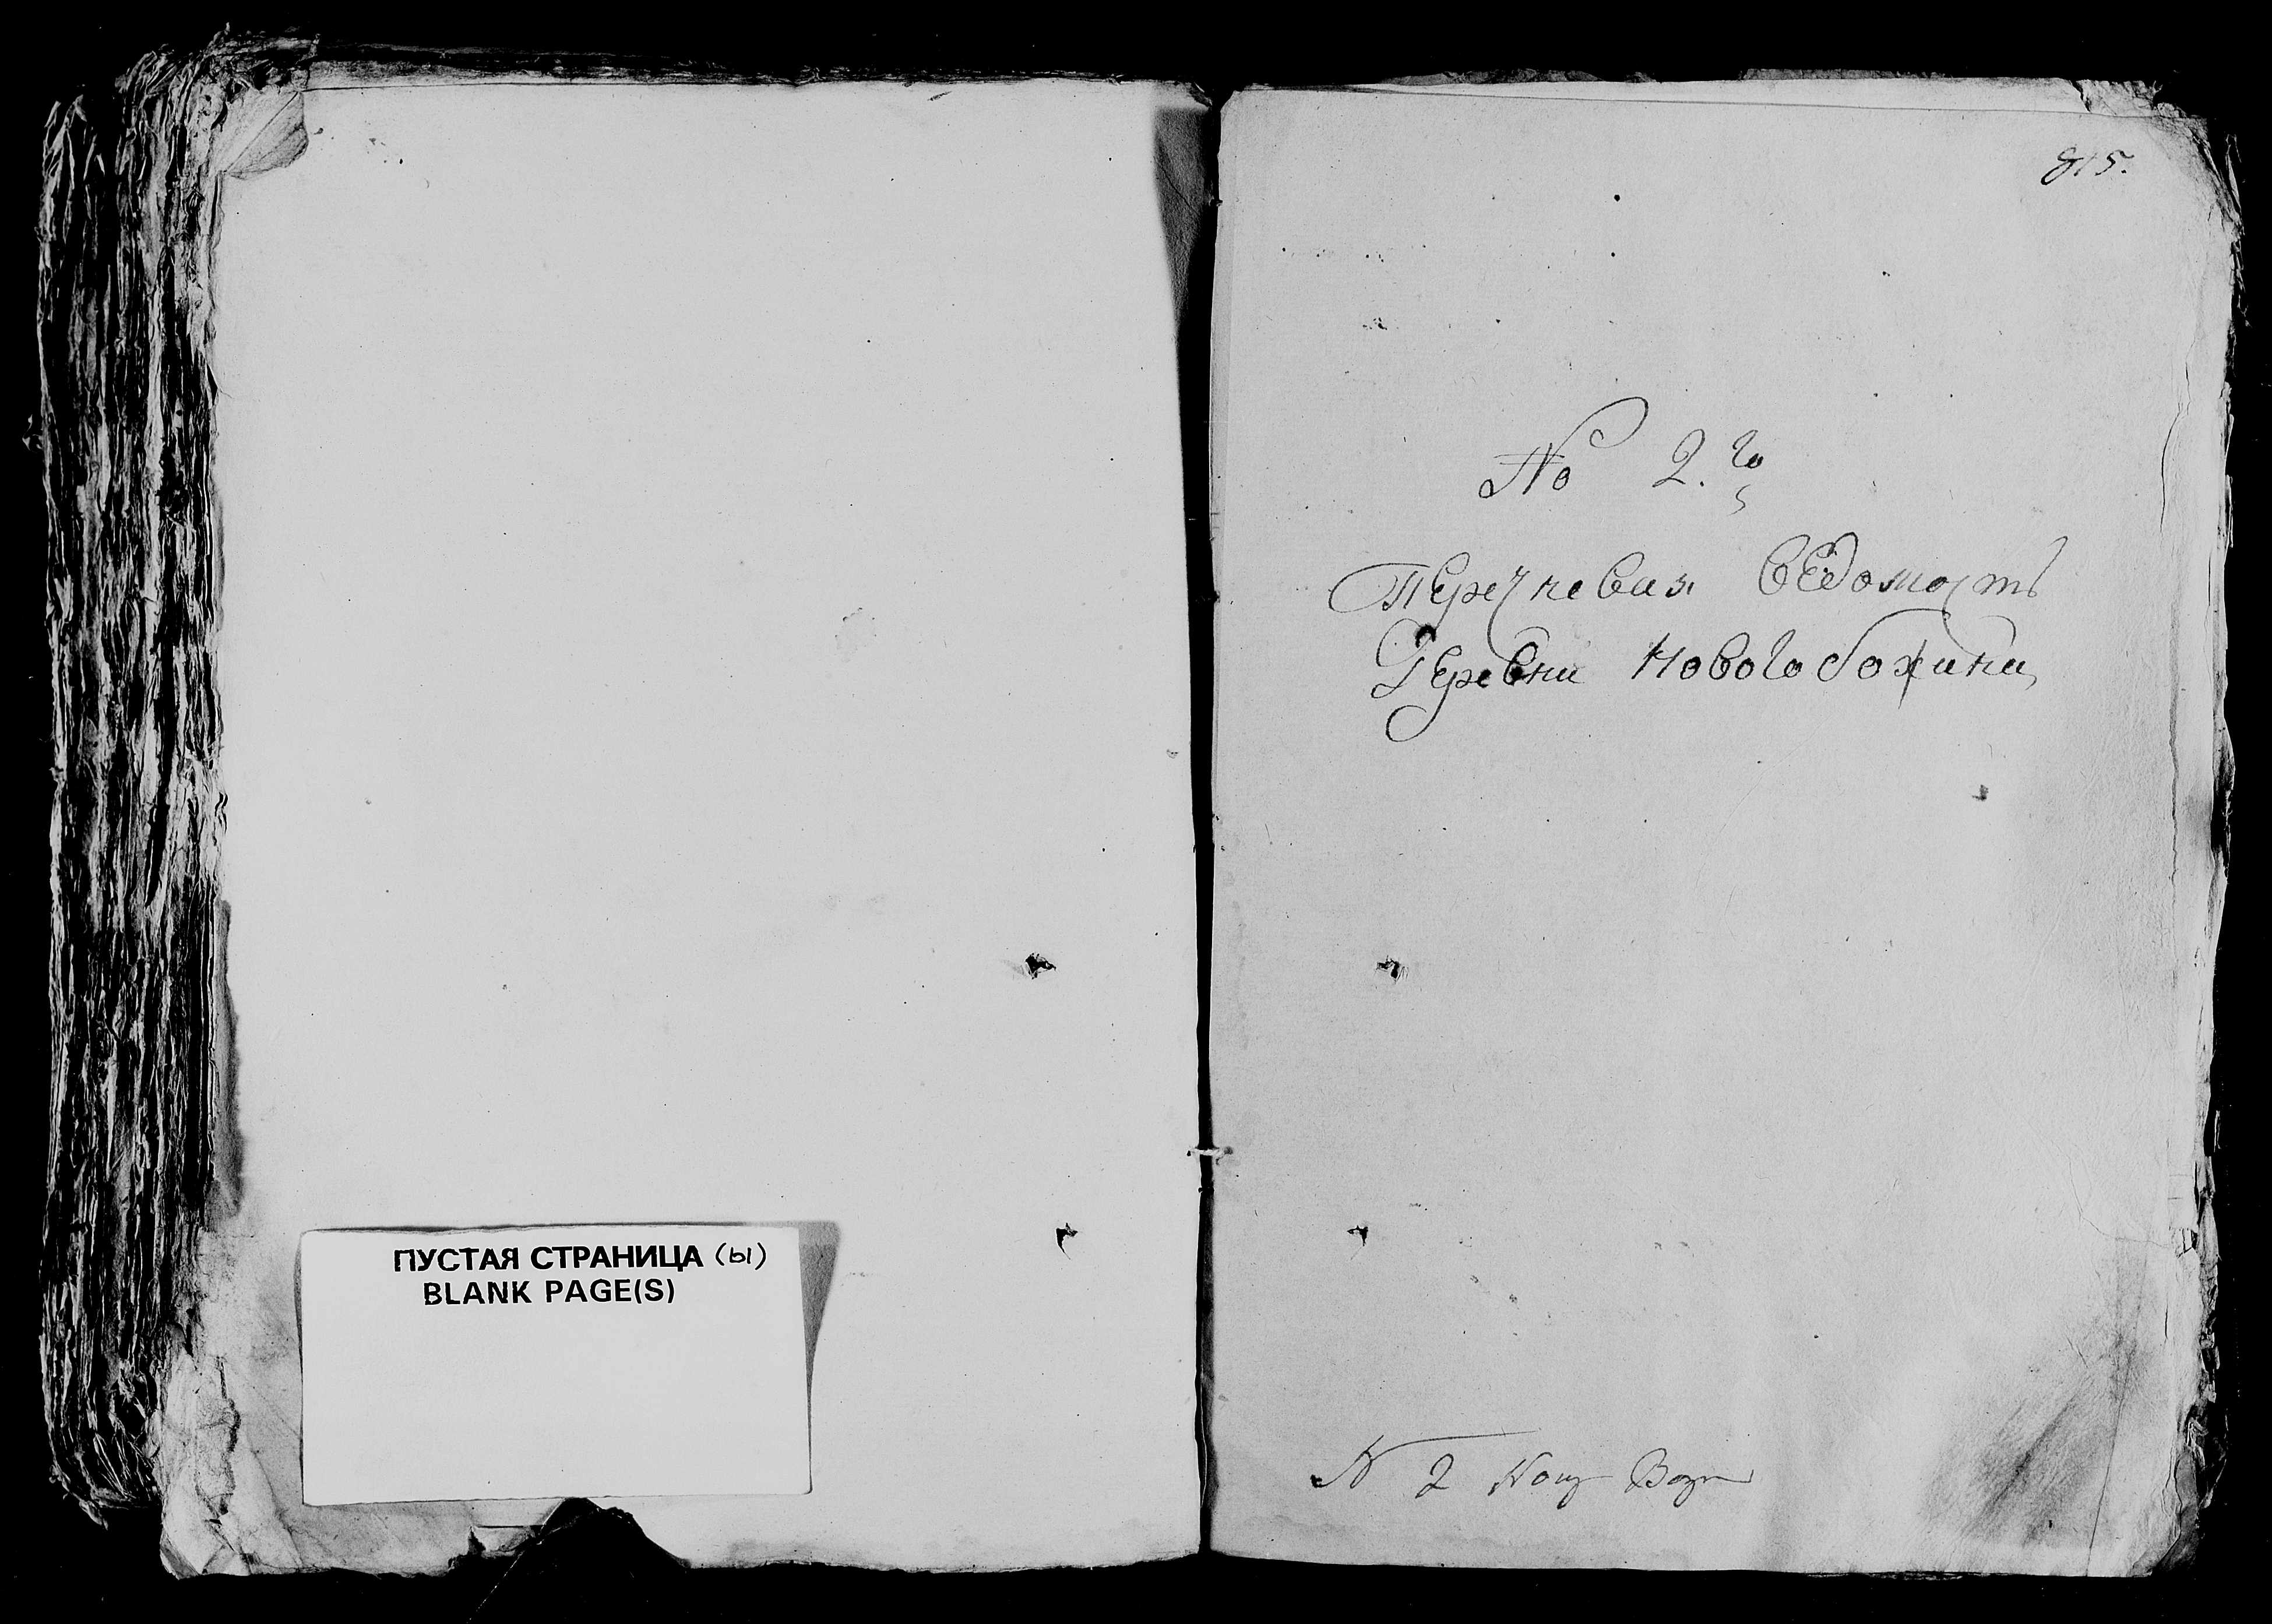 ПУСТАЯ СТРАНИЦА (ы)
BLANK PAGE(S)
815.
No 2.го
перечневая ведомость
деревни новогобожина
N 2